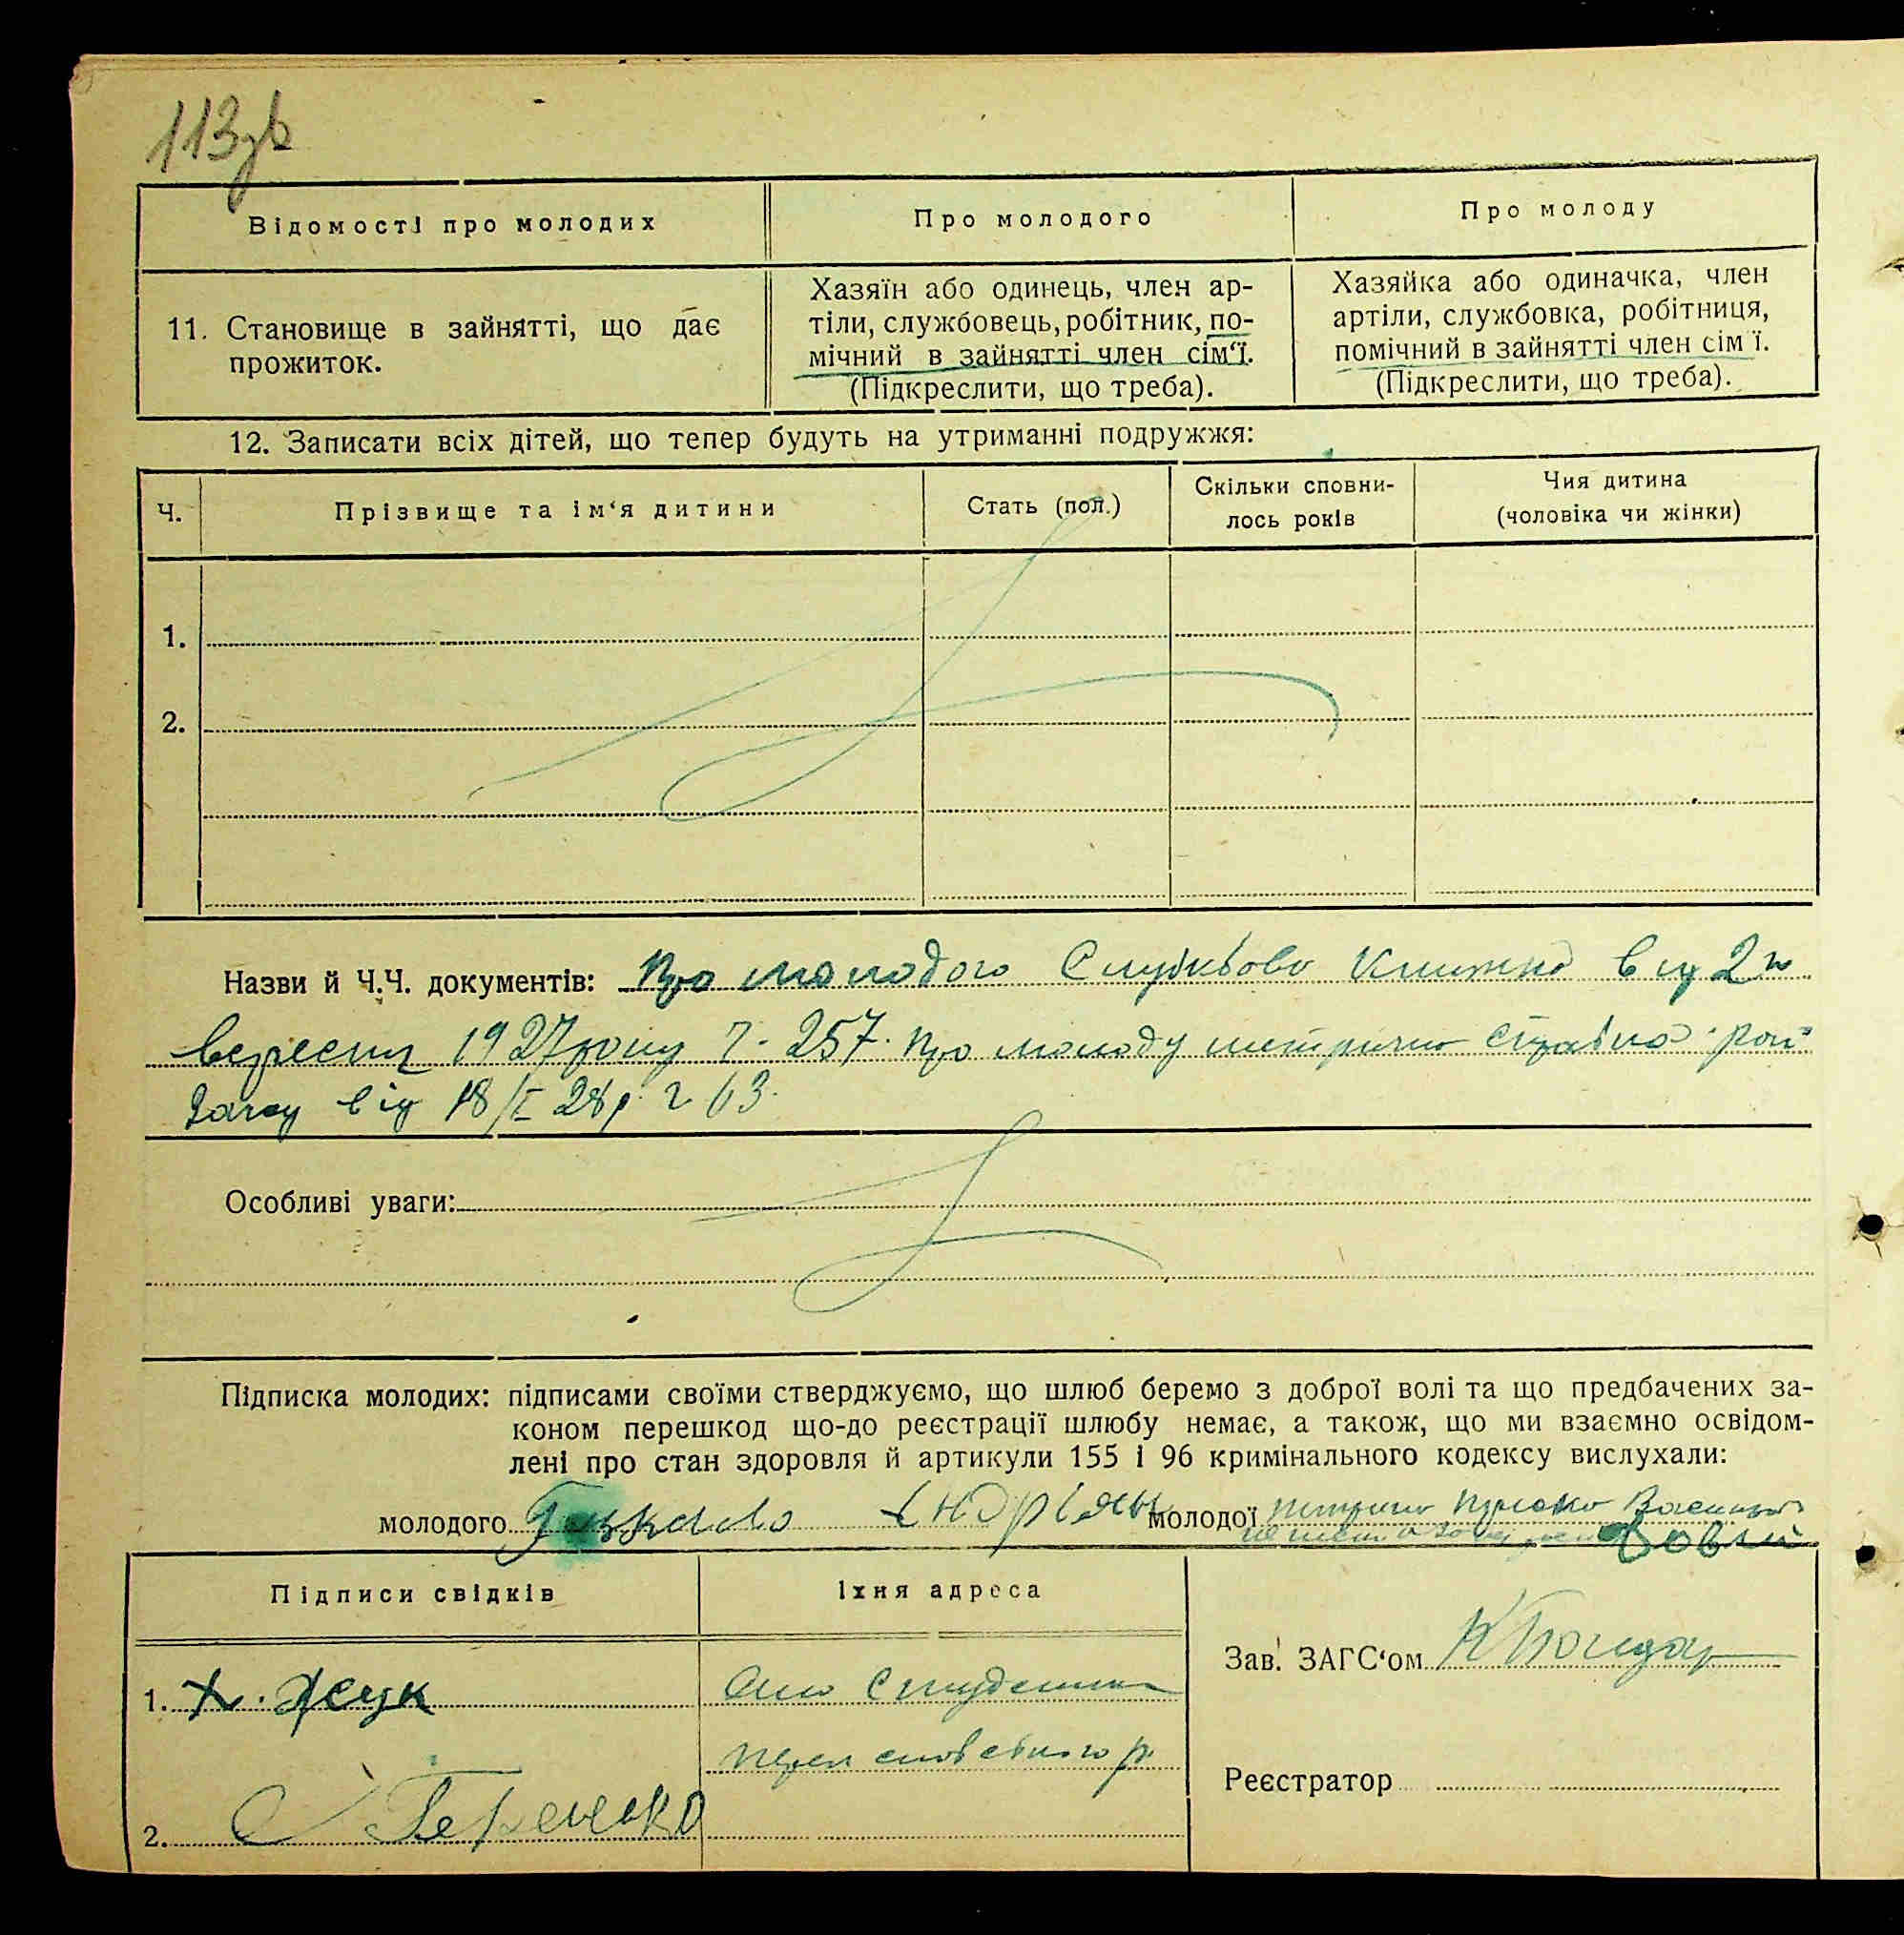 113зв
Відомості про молодих
Про молодого
Про молоду
11. Становище в зайнятті, що дає
прожиток.
Хазяїн або одинець, член ар-
тіли, службовець, робітник, по-
мічний в зайнятті член сім‘ї.
(Підкреслити, що треба).
Хазяйка або одиначка, член
артіли, службовка, робітниця,
помічний в зайнятті член сім ї.
(Підкреслити, що треба).
12. Записати всіх дітей, що тепер будуть на утриманні подружжя:
Ч.
Прізвище та ім‘я дитини
Стать (пол.)
Скільки сповни-
лось років
Чия дитина
(чоловіка чи жінки)
1.
2.
Назви й Ч.Ч. документів: Про молодого від 2го
вересня 1927 року ч. 257. Про молоду
від 18/I 28 р. ч 63.
Особливі уваги:
Підписка молодих: підписами своїми стверджуємо, що шлюб беремо з доброї волі та що предбачених за-
коном перешкод що-до реєстрації шлюбу немає, а також, що ми взаємно освідом-
лені про стан здоровля й артикули 155 і 96 кримінального кодексу вислухали:
молодого
молодої
Підписи свідків
Їхня адреса
1.
2.
Зав. ЗАГС‘ом К Бондар
Реєстратор